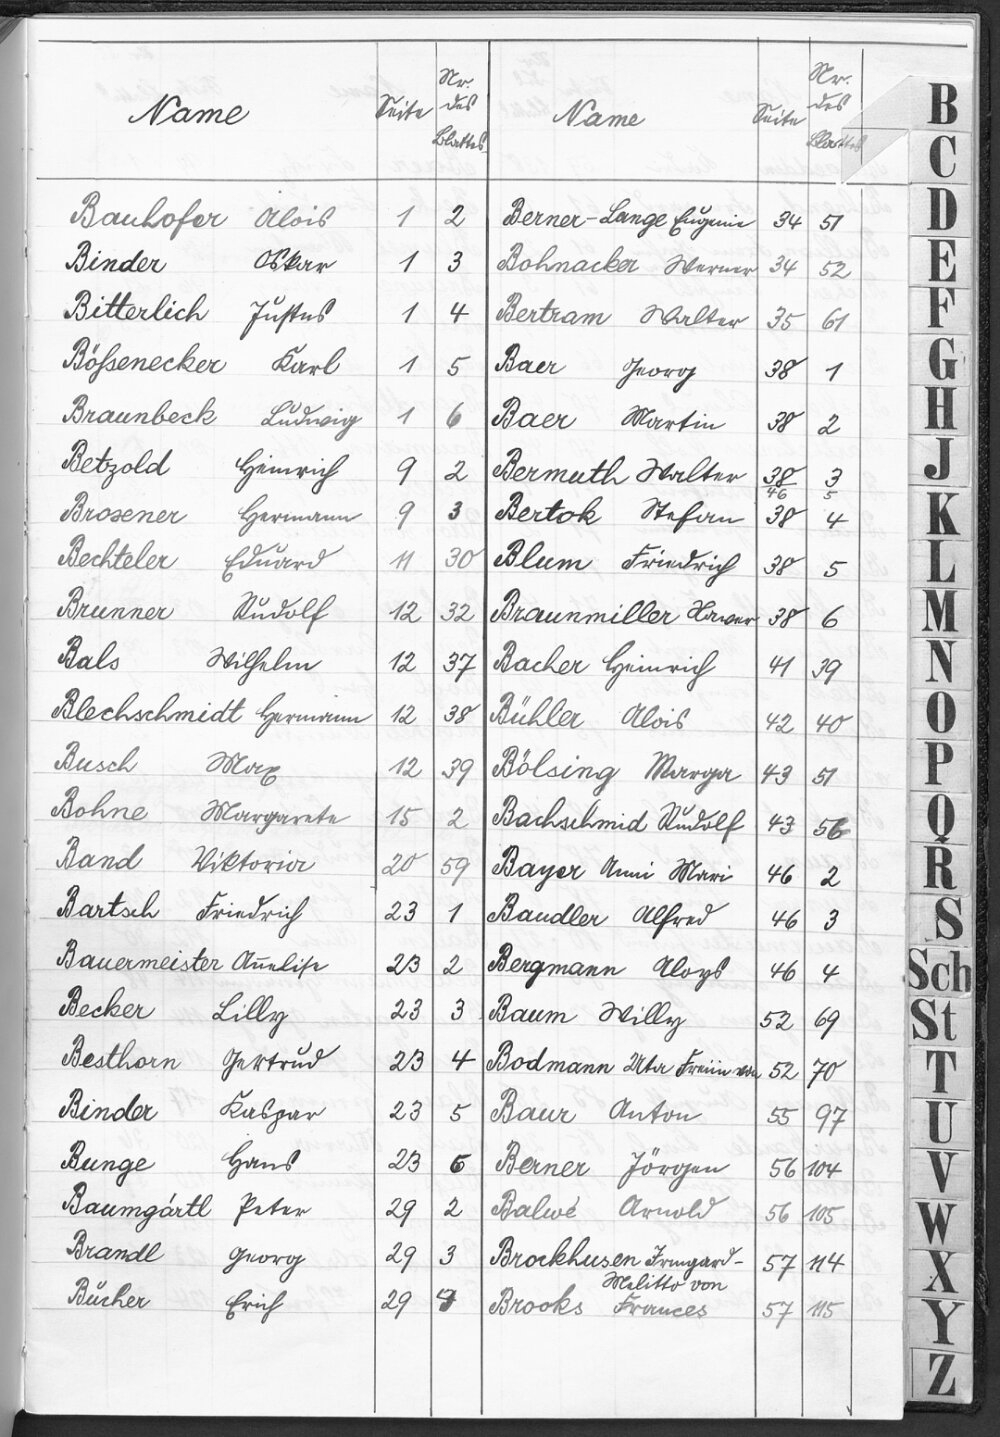 Name Seite Nr. des Blattes
Bauhofer Alois 1 2
Binder Oskar 1 3
Bitterlich Justus 1 4
Bößenecker Karl 1 5
Braunbeck Ludwig 1 6
Betzold Heinrich 9 2
Brosener Hermann 9 3
Bechteler Eduard 11 30
Brunner Rudolf 12 32
Bals Wilhelm 12 37
Blechschmidt Hermann 12 38
Busch Max 12 39
Bohne Margarete 15 2
Band Viktoria 20 59
Bartsch Friedrich 23 1
Bauermeister Annelise 23 2
Becker Lilly 23 3
Besthorn Gertrud 23 4
Binder Kaspar 23 5
Bunge Hans 23 6
Baumgärtl Peter 29 2
Brandl Georg 29 3
Bücher Erich 29
Name Seite Nr. des Blattes
Berner-Lange Eugenie 34 51
Bohnacker Werner 34 52
Bertram Walter 35 61
Baer Georg 38 1
Baer Martin 38 2
Bermuth Walter 38 3
46 5
Bertok Stefan 38 4
Blum Friedrich 38 5
Braunmiller Xaver 38 6
Bacher Heinrich 41 39
Bühler Alois 42 40
Bölsing Marga 43 51
Bachschmid Rudolf 43 56
Bayer Anni Mari 46 2
Baudler Alfred 46 3
Bergmann Aloys 46 4
Baum Willy 52 69
Bodmann Uta Freiin von 52 70
Baur Anton 55 97
Berner Jörgen 56 104
Balwé Arnold 56 105
Brockhusen Irmgard- 57 114
Melitta von
Brooks Frances 57 115
B
C
D
E
F
G
H
J
K
L
M
N
O
P
Q
R
S
Sch
St
T
U
V
W
X
Y
Z